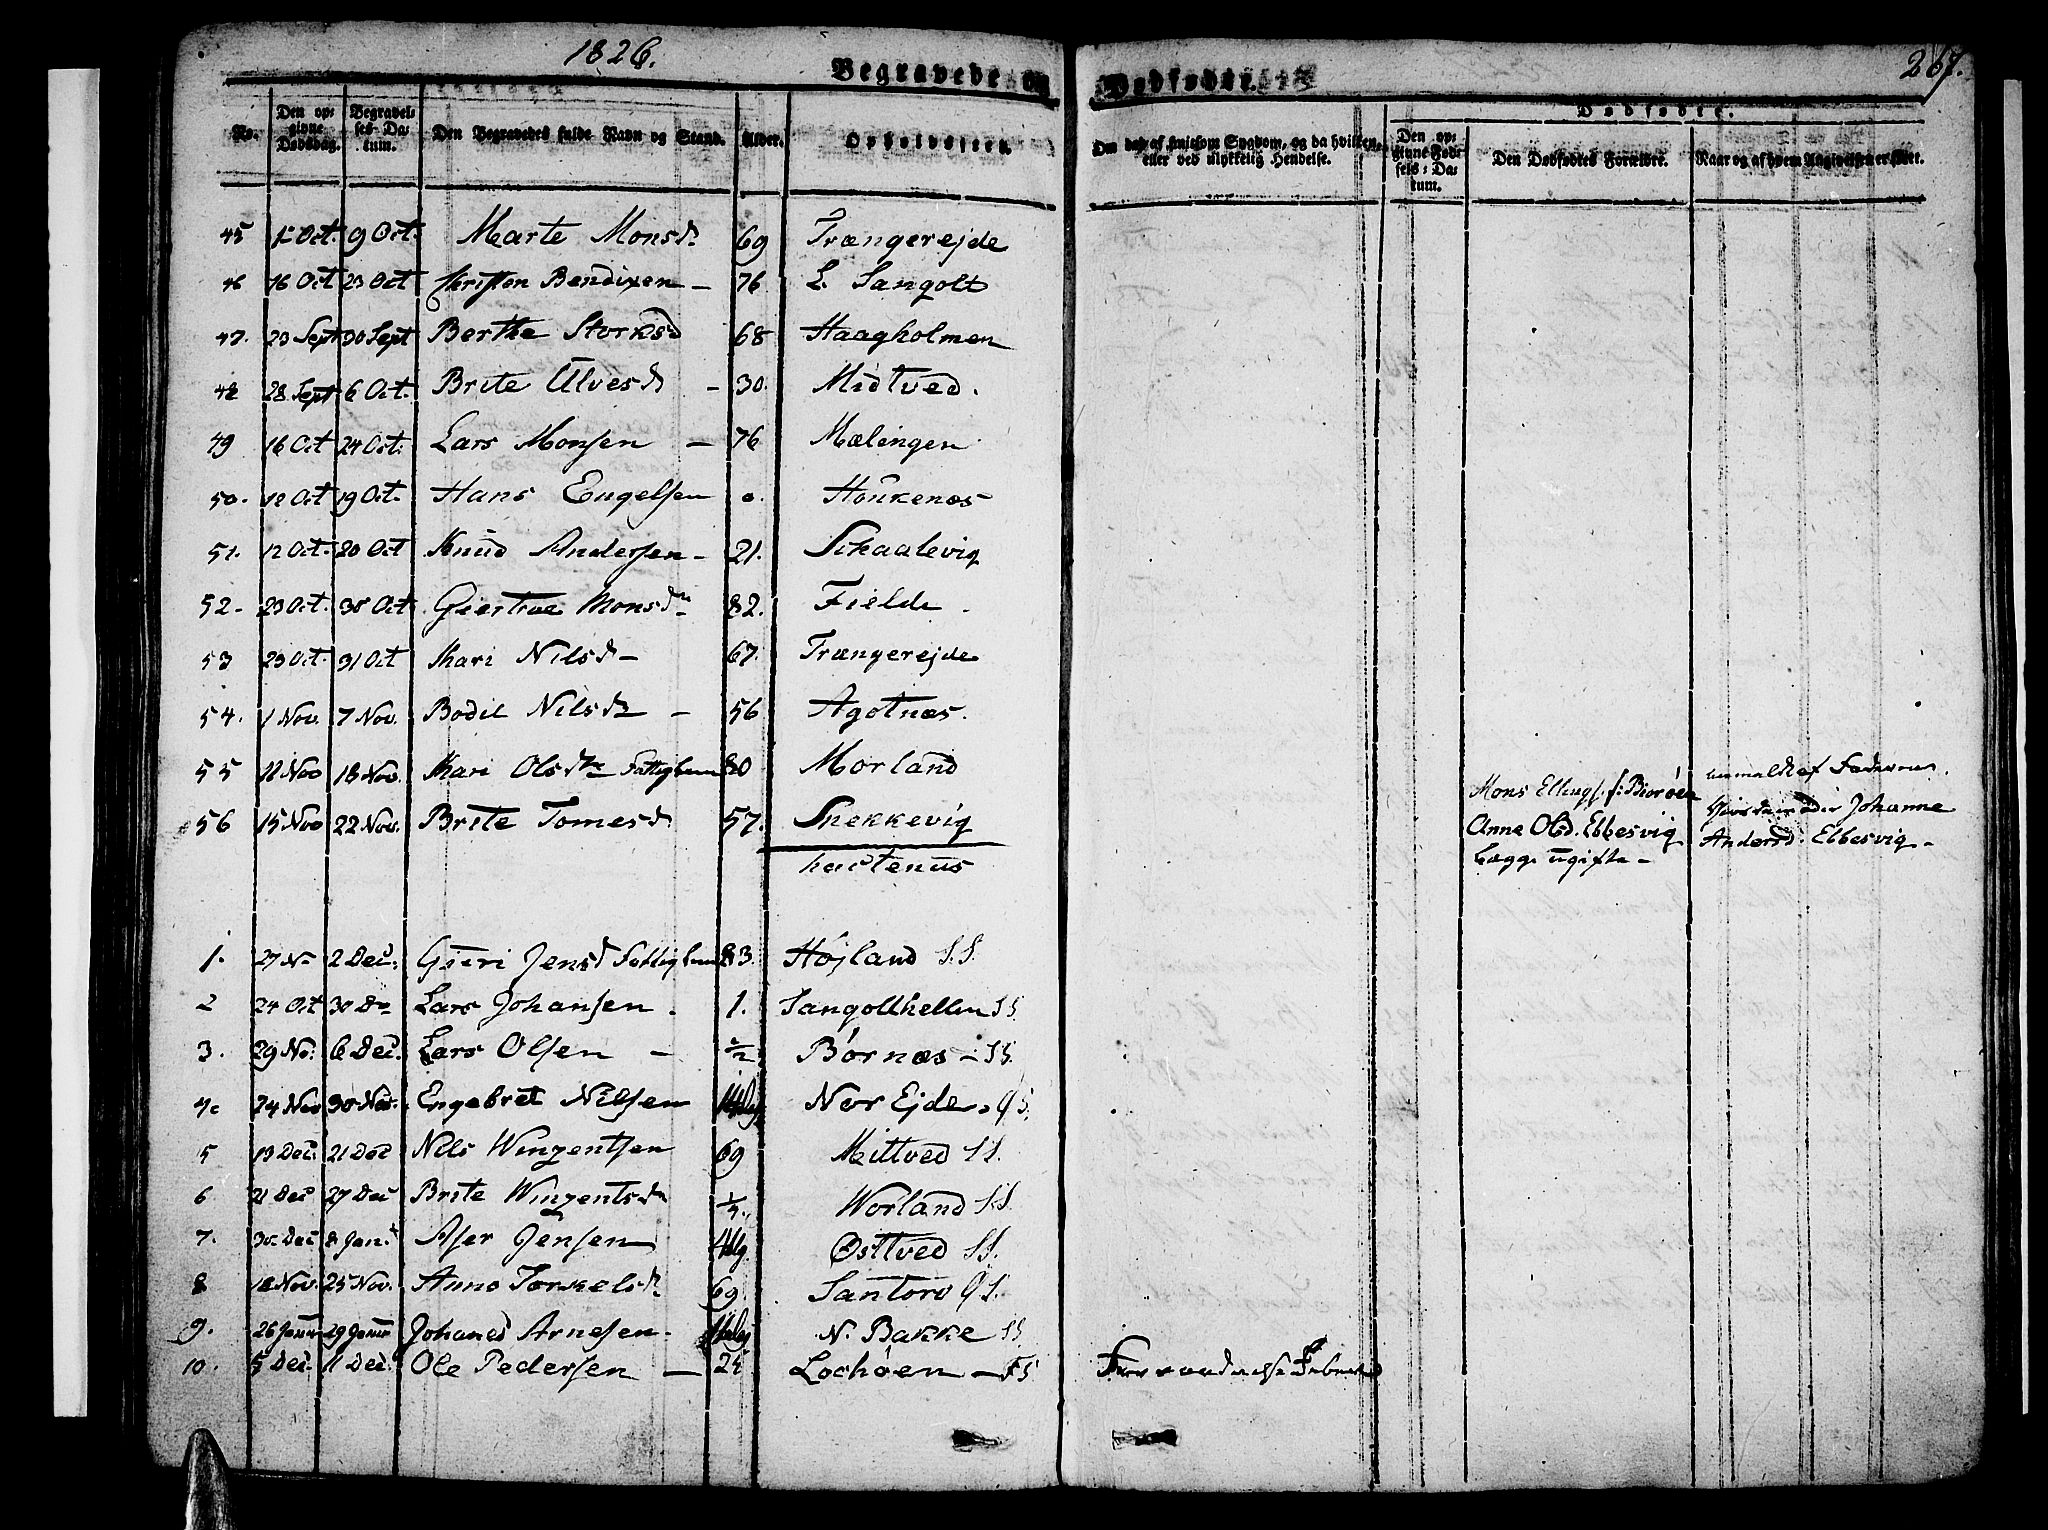 1826.
267.
Begravede og Dødfødte.
Dødfødte.
No. Den opgivne Dødsdag. Begravelses-Datum. Den Begravedes fulde Navn og Stand. Alder. Opholdssted. Om død af smitsom Sygdom, og da hvilken, eller ved ulykkelig Hendelse. Den opgivne Fødsels-Datum. Den Dødfødtes Forældre. Naar og af hvem Angivelsen er skeet.
45 1 Oct. 9 Oct. Marte Monsd 69 Trængerejde
46 16 Oct 23 Oct Kristen Bendixen - 76 L. Sangolt
47. 23 Sept 30 Sept Berthe Storksd 68 Haagholmen
48 28 Sept 6 Oct. Brite Ulvesd - 30. Midtved.
49 16 Oct 24 Oct. Lars Monsen - 76 Mælingen
50. 12 Oct 19 Oct. Hans Engelsen 0. Houkenæs
51. 12 Oct. 20 Oct Knud Andersen - 21. Schaalevig
52. 23 Oct. 30 Oct Giertrue Monsd 82. Fielde
53 23 Oct. 31 Oct Kari Nilsd - 67. Trængerejde
54. 1 Nov. 7 Nov. Bodil Nilsd - 56 Agotnæs.
55 11 Nov 18 Nov. Kari Olsd Fattiglem 80 Morland
56 15 Nov 22 Nov. Brite Tomesd 57. Snekkevig
hactenus
Mons Ellings. Biorøen
Anne Olsd. Ebbesvig
begge ugifte -
anmeldt af Faderen
Johanne
Andersd. Ebbesvig -
1. 27 N 2 Dec. Giøri Jensd Fattiglem 83. Højland S.S.
2 24 Oct 30 Lars Johansen. 1. Sangolthellen SS.
3. 29 No. 6 Dec. Lars Olsen - ½ Børnæs - SS.
4. 24 Nov 30 Nov. Engebret Nilsen Nor Ejde.
5 13 Dec. 21 Dec Nils Winzentsen 69 Mittved SS.
6 21 Dec 27 Dec Brite Winzentsd ¼. Worland SS.
7. 30 Dec 8 Jan. Aser Jensen Østtved SS.
8 18 Nov. 25 Nov. Anne Torkelsd 69. Santorv
9. 26 Janu 29 Janu Johanes Arnesen - N. Bakke SS
10. 5 Dec. 11 Dec. Ole Pedersen - 24 Lochøen - FS